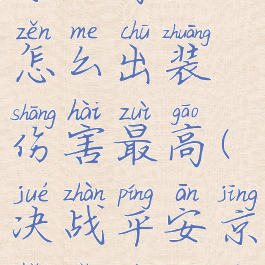 zěn me chū zhuāng
怎么出装
shāng hài zuì gāo
伤害最高(
jué zhàn píng ān jīng
决战平安京